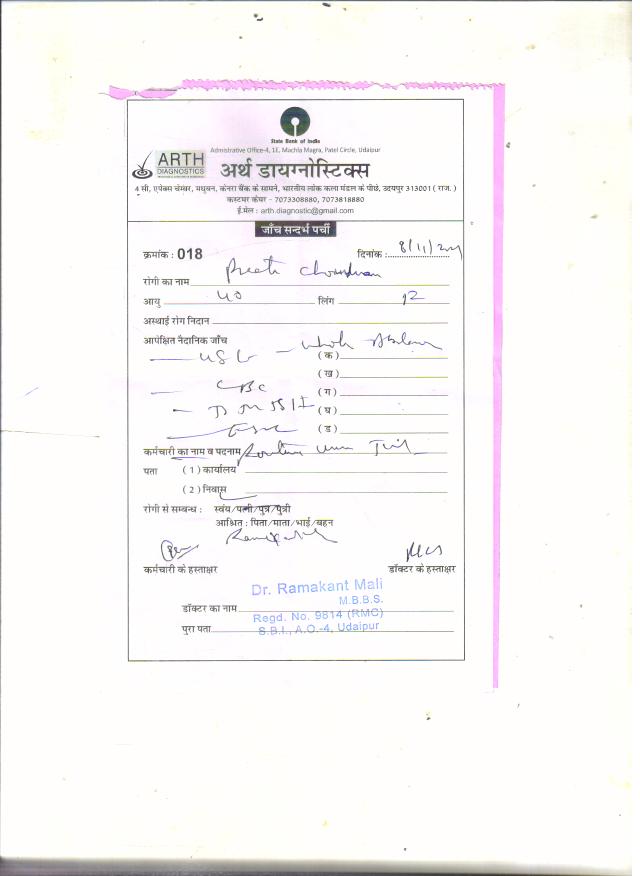 State Bank of India
Admistrative Office-4, 1E, Machla Magra, Patel Circle, Udaipur
ARTH
DIAGNOSTICS
अर्थ डायग्नोस्टिक्स
4 सी, एपेक्स चेम्बर, मधुबन, केनरा बैंक के सामने, भारतीय लोक कला मंडल के पीछे, उदयपुर 313001 ( राज. )
कस्टमर केयर - 7073308880, 7073818880
ई.मेल : arth.diagnostic@gmail.com
जाँच सन्दर्भ पर्ची
क्रमांक : 018 दिनांक : 8/11/
रोगी का नाम Preeti
आयु 40 लिंग
अस्थाई रोग निदान
आपेक्षित नैदानिक जाँच whole Abdomen
USG (क)
(ख)
CBC (ग)
(घ)
(ड)
कर्मचारी का नाम व पदनाम Routine
पता ( 1 ) कार्यालय
( 2 ) निवास
रोगी से सम्बन्ध : स्वंय/पत्नी/पुत्र/पुत्री
आश्रित : पिता/माता/भाई/बहन
कर्मचारी के हस्ताक्षर डॉक्टर के हस्ताक्षर
Dr. Ramakant Mali
M.B.B.S.
डॉक्टर का नाम
Regd. No. 9814 (RMC)
पुरा पता S.B.I., A.O.-4, Udaipur